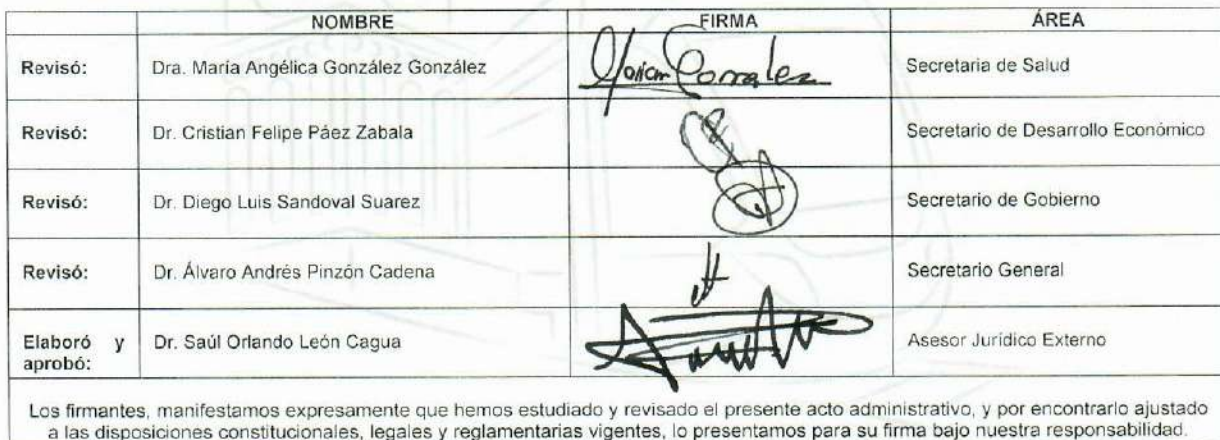 NOMBRE FIRMA ÁREA
Revisó: Dra. María Angélica González González Secretaria de Salud
Revisó: Dr. Cristian Felipe Páez Zabala Secretario de Desarrollo Económico
Revisó: Dr. Diego Luis Sandoval Suarez Secretario de Gobierno
Revisó: Dr. Álvaro Andrés Pinzón Cadena Secretario General
Elaboró y Dr. Saúl Orlando León Cagua Asesor Jurídico Externo
aprobó:
Los firmantes, manifestamos expresamente que hemos estudiado y revisado el presente acto administrativo, y por encontrarlo ajustado
a las disposiciones constitucionales, legales y reglamentarias vigentes, lo presentamos para su firma bajo nuestra responsabilidad.